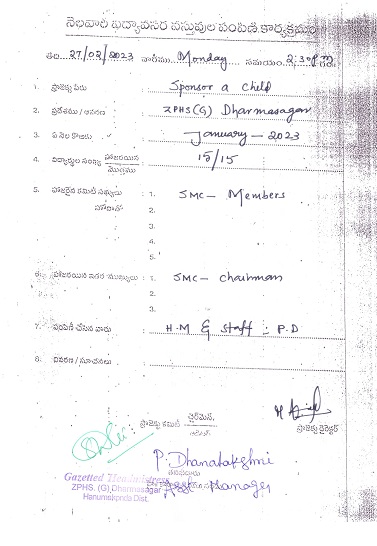 నెలవారి విద్యావసర వస్తువుల పంపిణి కార్యక్రమం
తేది 27/02/2023 వారము Monday సమయం 2:30
1. ప్రాజెక్టు పేరు : Sponsor a child
2. ప్రదేశము / : ZPHS(G) Dharmasagar
3. ఏ నెల కొరకు : January - 2023
4. విద్యార్థుల సంఖ్య హాజరయిన / మొత్తము : 15/15
5. హాజరైన కమిటీ సభ్యులు : 1. SMC - Members
2.
3.
4.
5.
6. హాజరయిన ఇతర ముఖ్యులు : 1. SMC - chairman
2.
3.
7. పంపిణీ చేసిన వారు : H.M & Staff : P.D
8. వివరణ / సూచనలు :
ప్రాజెక్టు కమిటి చైర్మెన్,
ప్రాజెక్టు డైరెక్టర్
P. Dhanalakshmi
Asst. Manager
Gazetted Headmistress
ZPHS. (G) Dharmasagar
Hanumakonda Dist.